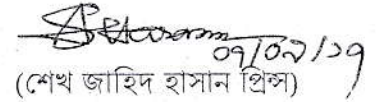 ০৭/০২/১৭
(শেখ জাহিদ হাসান প্রিন্স)